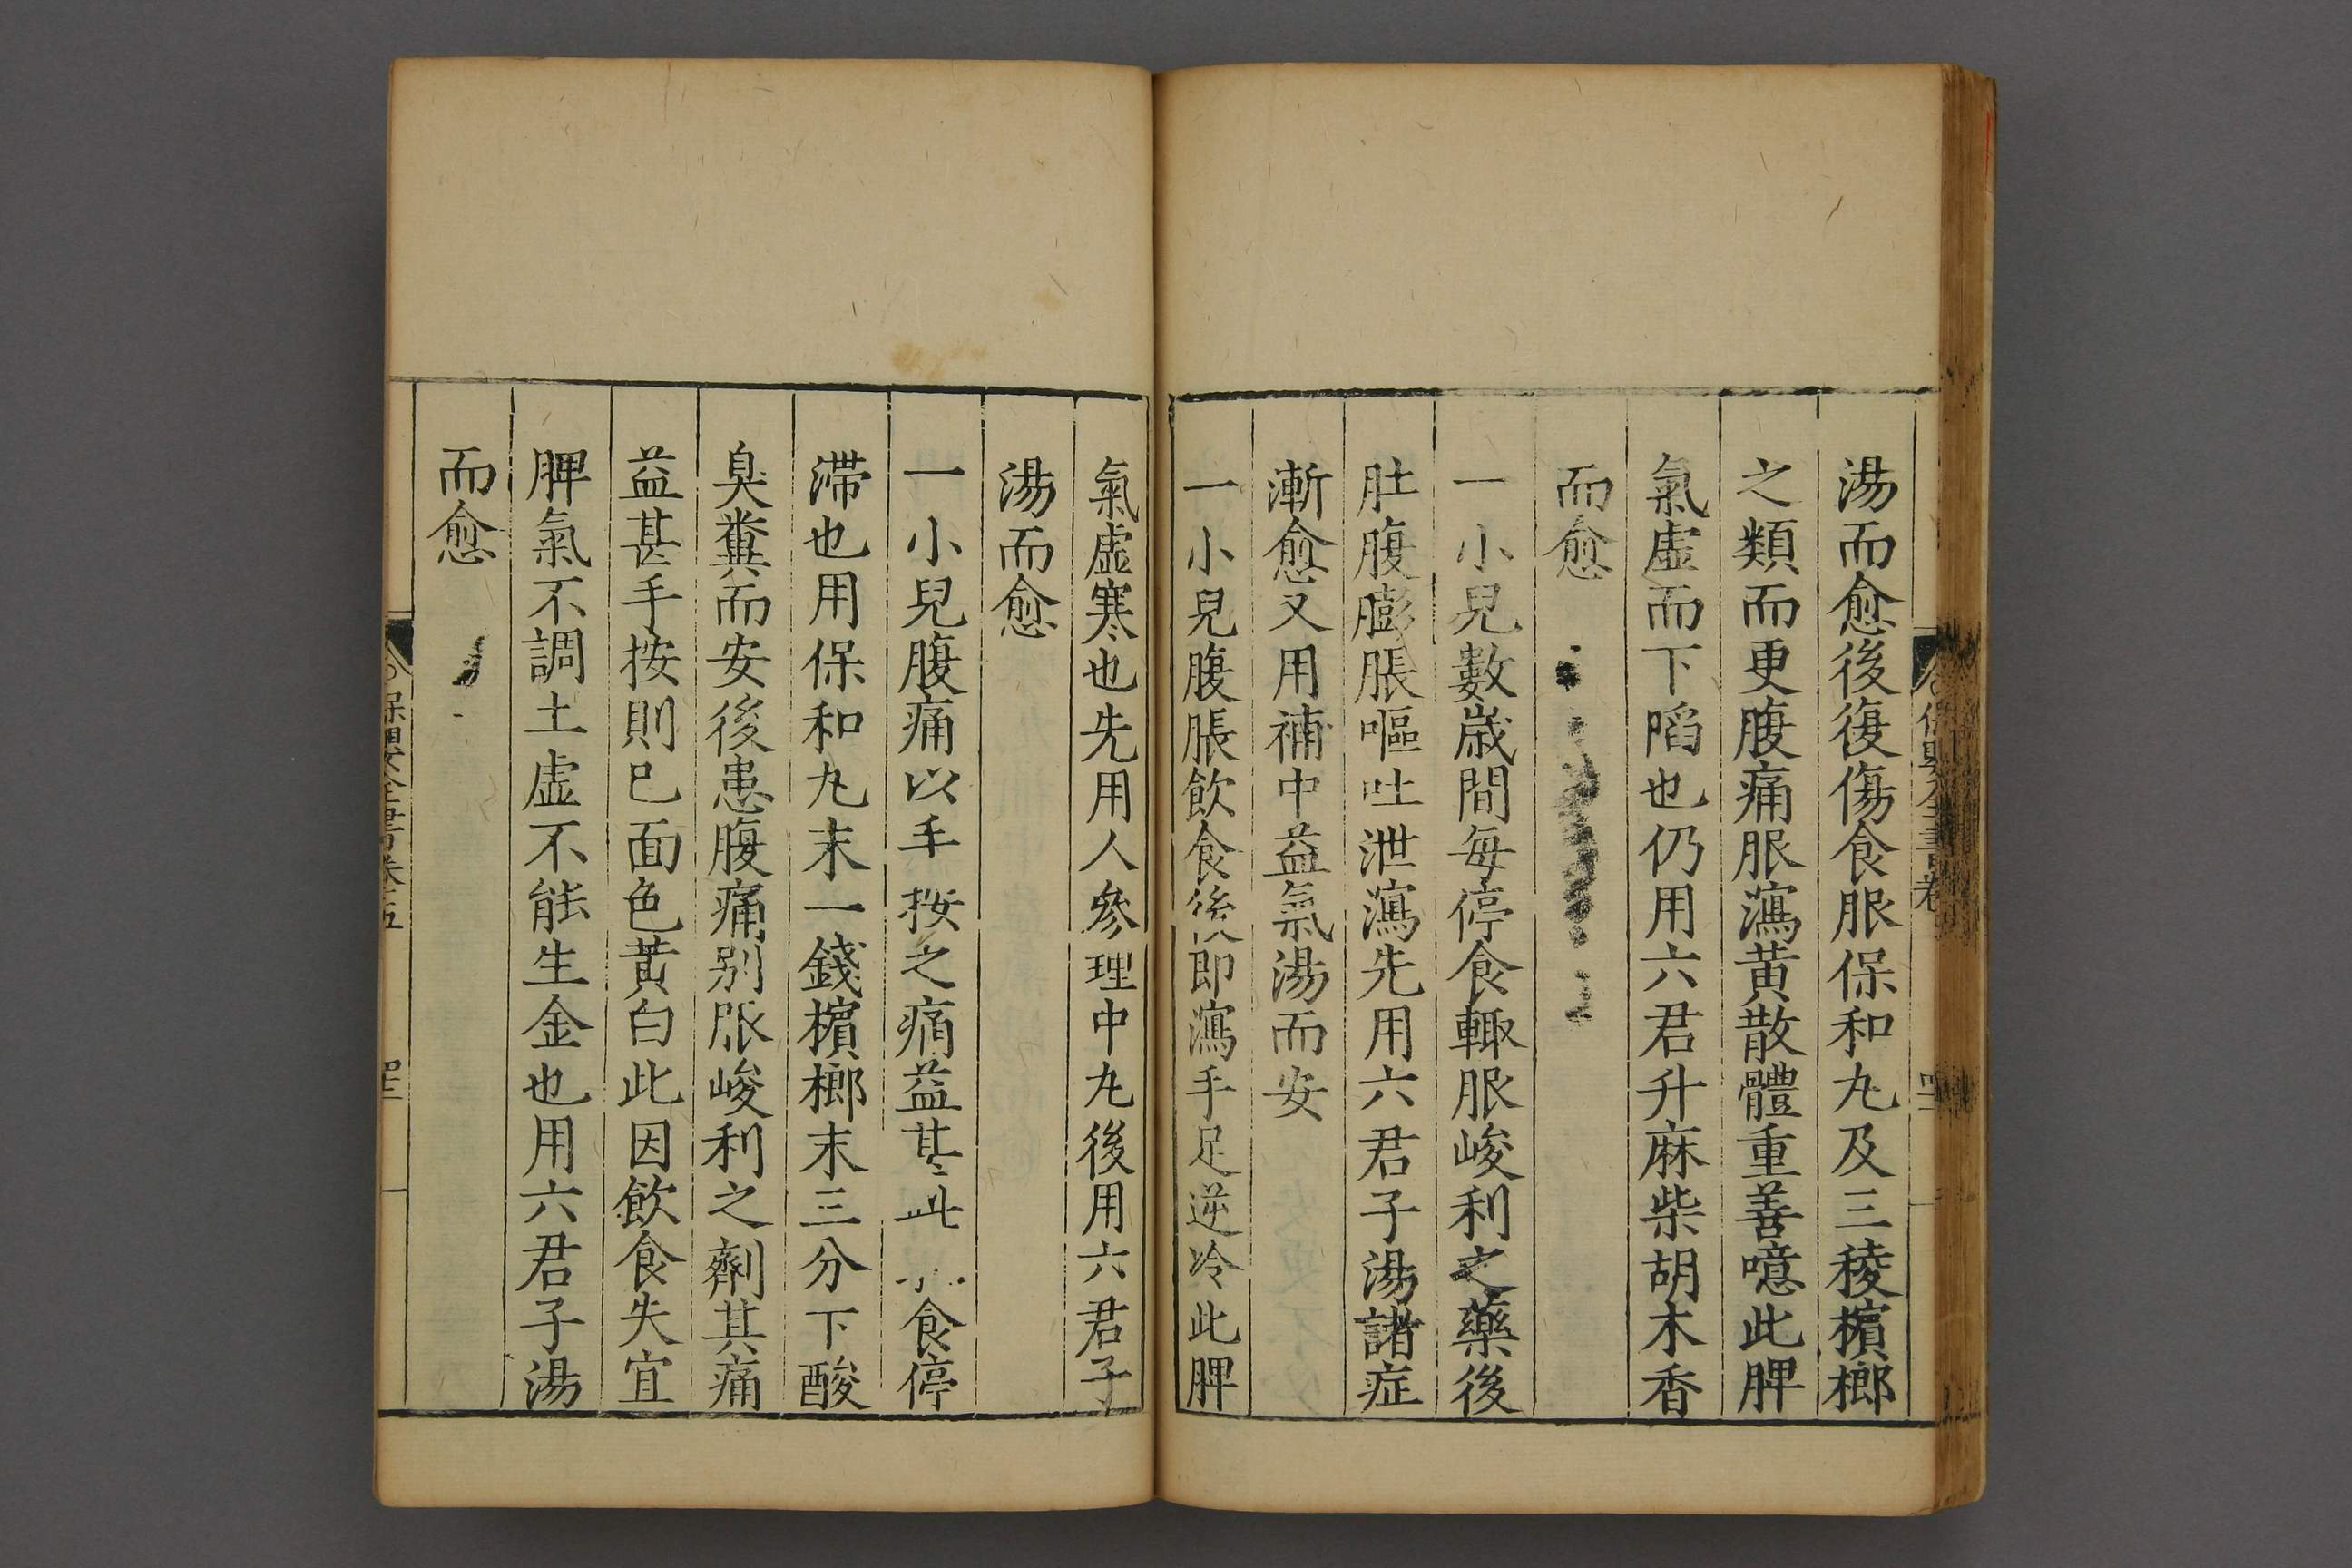 湯而愈後復傷食服保和丸及三稜檳榔
之類而更腹痛服瀉黄散體重善噫此脾
氣虛而下陷也仍用六君升麻柴胡木香
而愈
一小兒數歳間每停食輙服峻利之藥後
肚腹膨脹嘔吐泄瀉先用六君子湯諸症
漸愈又用補中益氣湯而安
一小兒腹脹飲食後即瀉手足逆冷此脾
氣虛寒也先用人參理中丸後用六君子
湯而愈
一小兒腹痛以手按之痛益甚此食停
滯也用保和丸末一錢檳榔末三分下酸
臭糞而安後患腹痛别服峻利之劑其痛
益甚手按則已面色黃白此因飲食失宜
脾氣不調土虛不能生金也用六君子湯
而愈
保嬰全書卷五